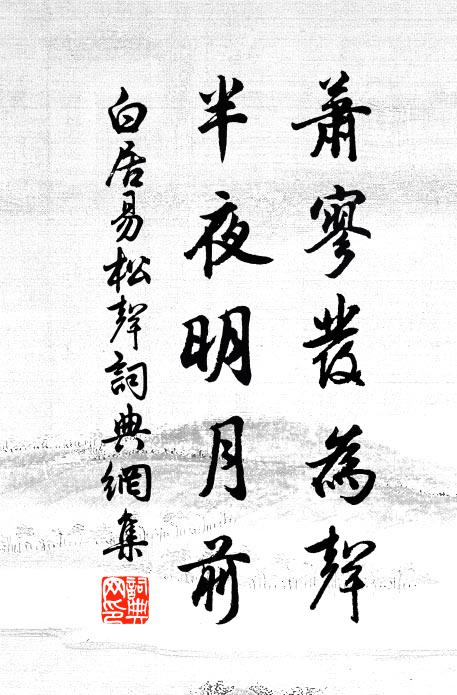 蕭寥發為聲
半夜明月前
白居易松聲詞典網集
詞典网印